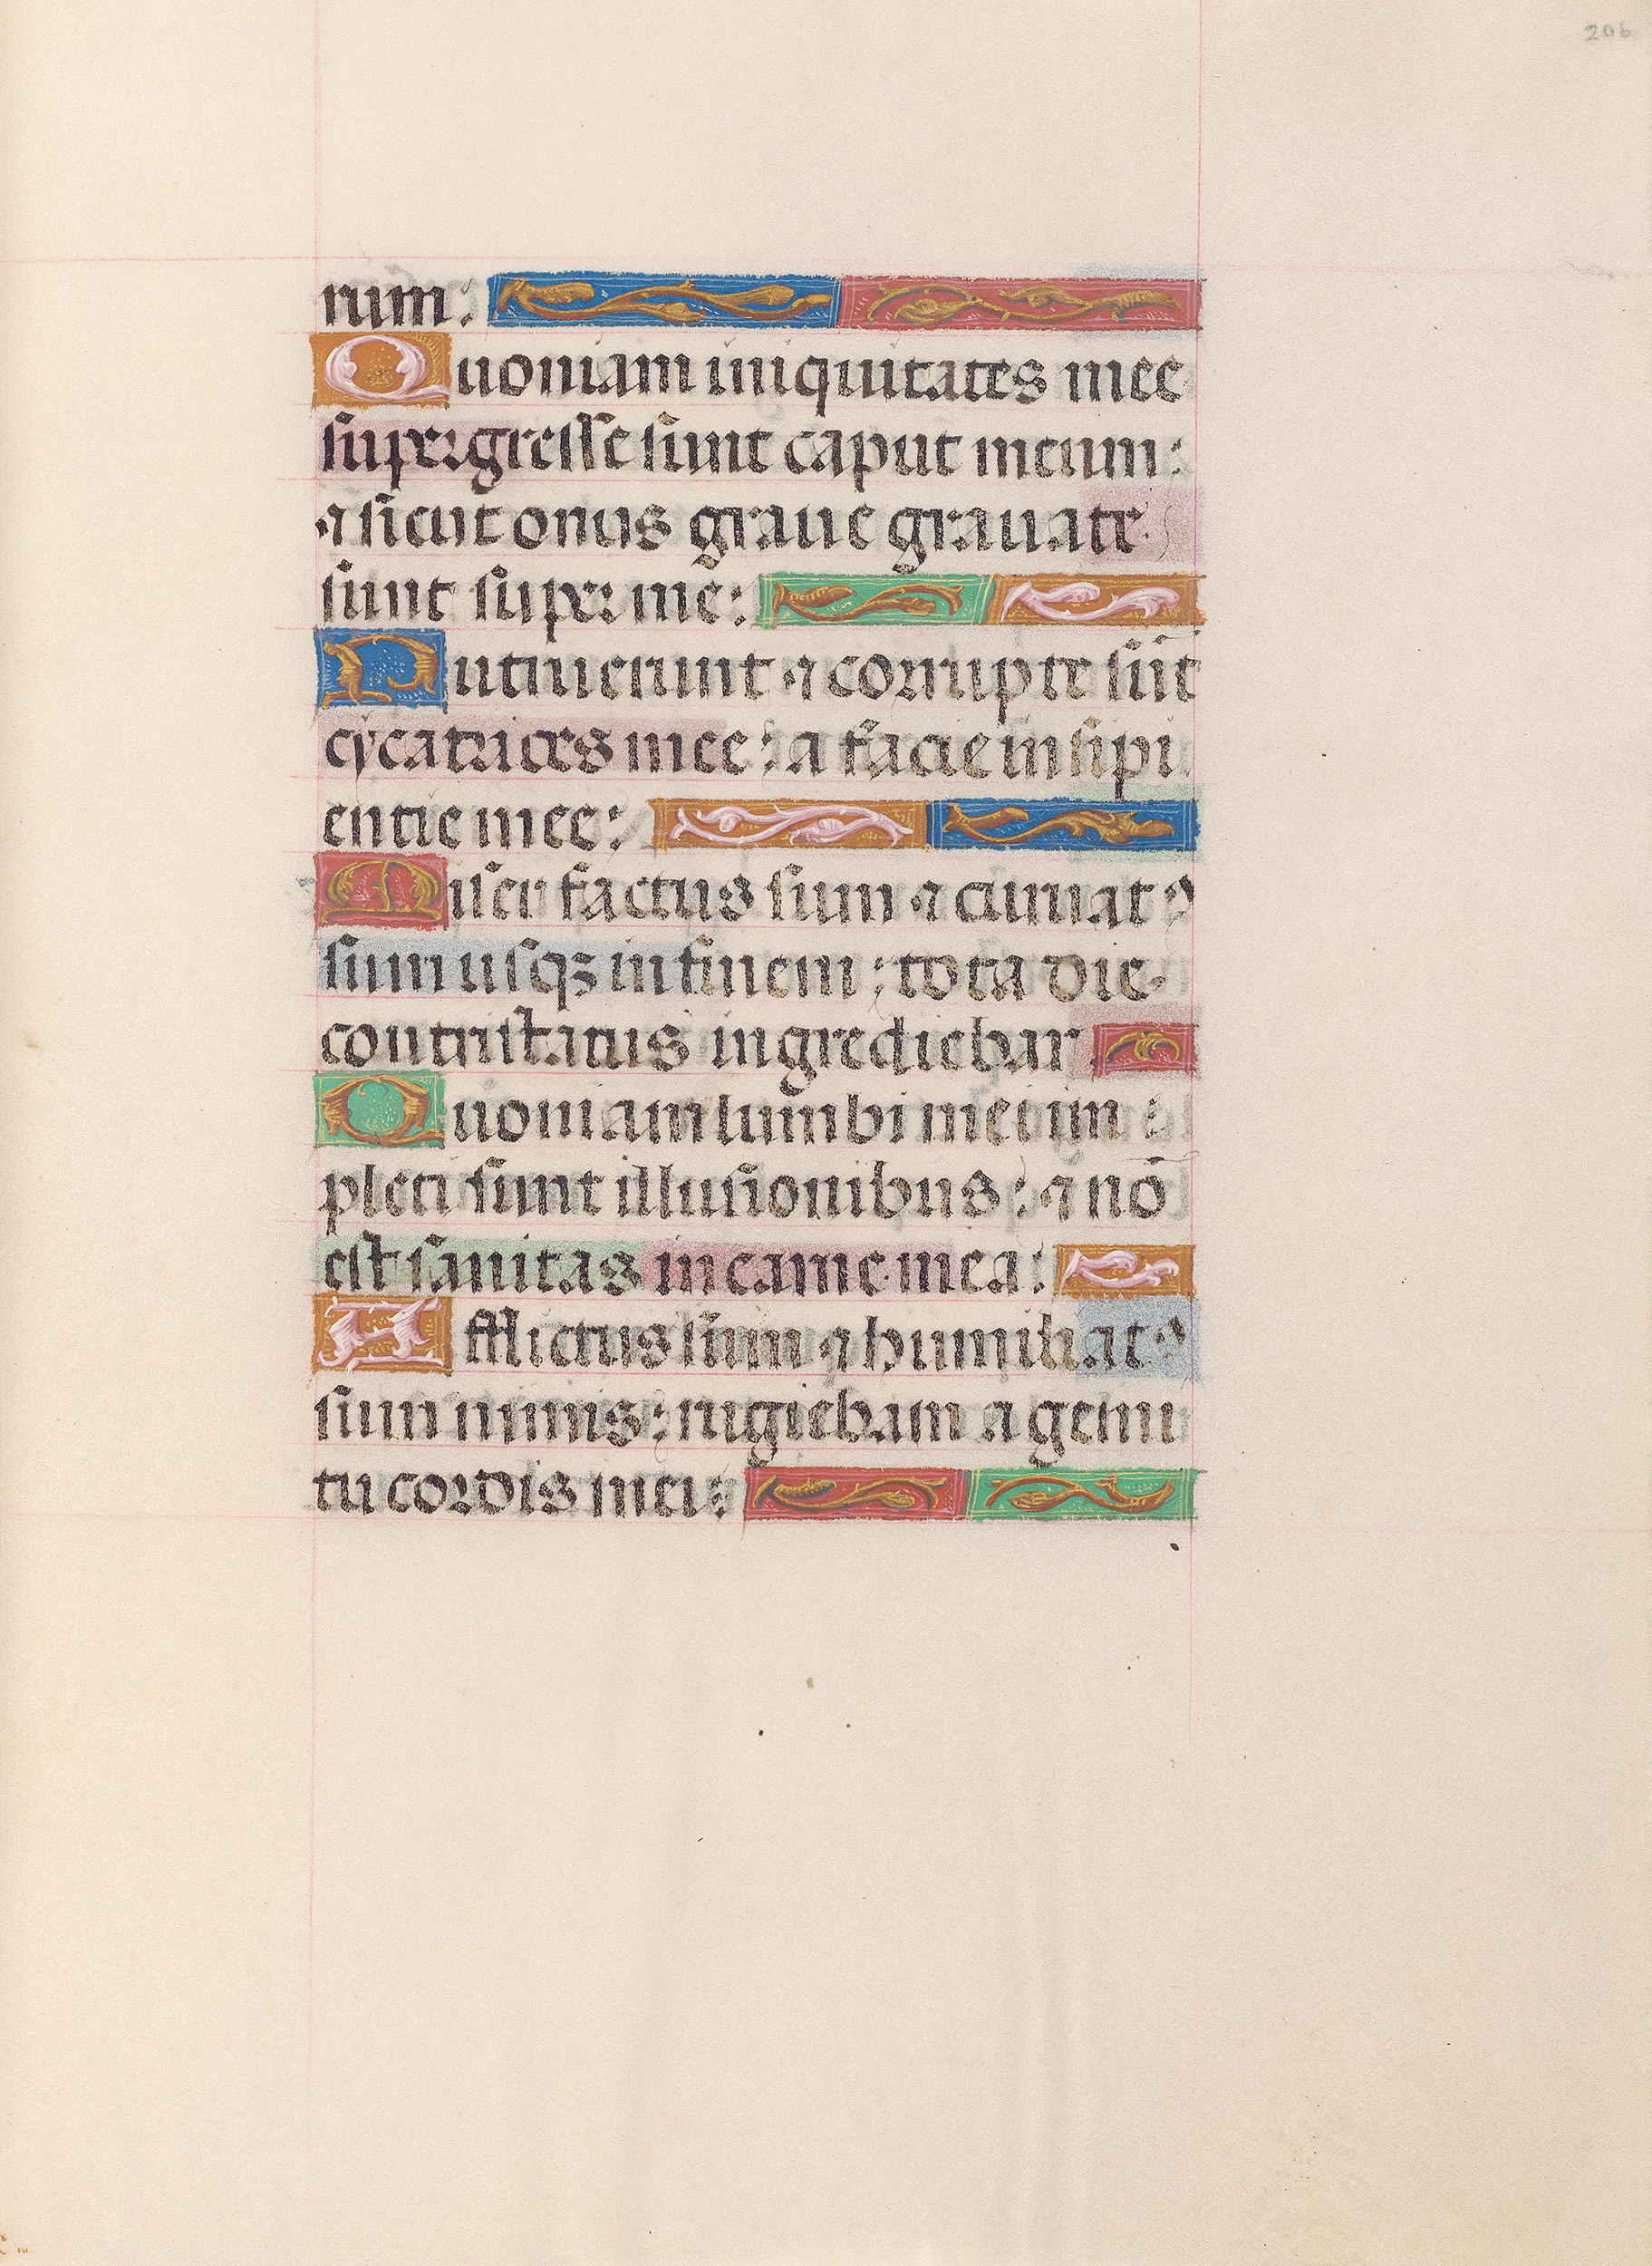 206
rum:
Quoniam iniquitates mee
supergresse sunt caput meum:
⁊ sicut onus graue grauate
sunt super me:
Putruerunt ⁊ corrupte sūt
cycatrices mee: a facie insipi
entie mee:
Miser factus sum ⁊ curuatꝰ
sum usqꝫ in finem: tota die
contristatus ingrediebar
Quoniam lumbi mei im
pleti sunt illusionibus: ⁊ nō
est sanitas in carne mea:
Afflictus sum ⁊ humiliatꝰ
sum nimis: rugiebam a gemi
tu cordis mei: